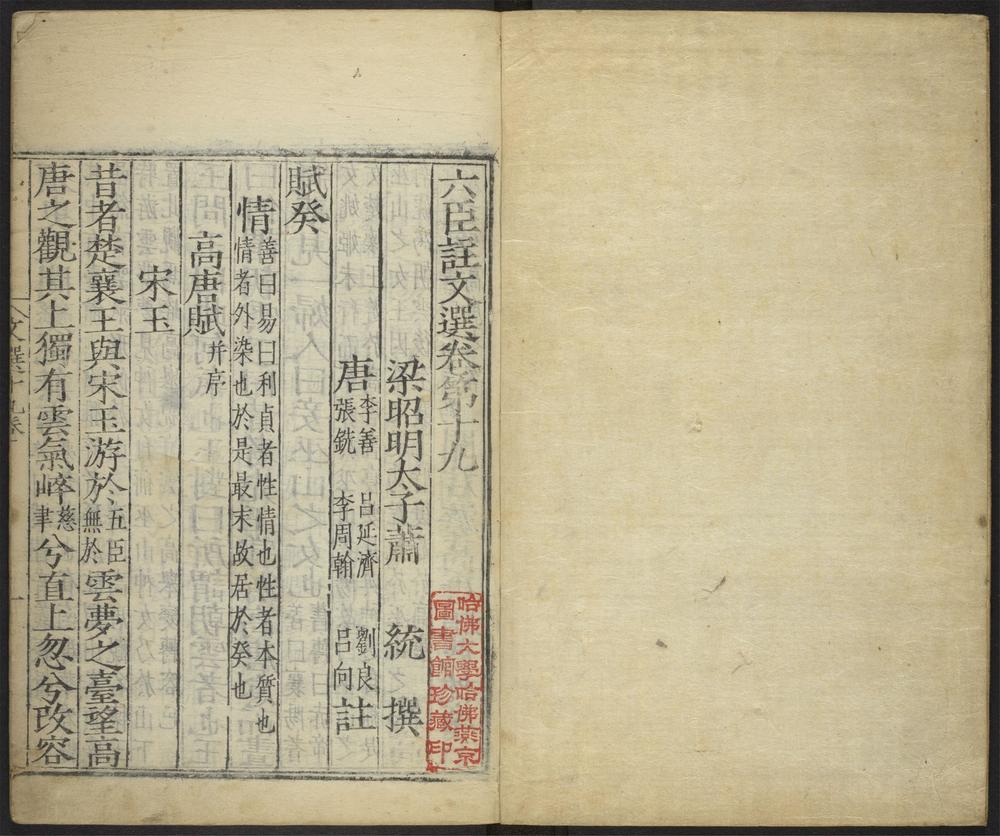 六臣註文選卷第十九
梁昭明太子蕭 統 撰
唐李善 呂延濟 劉良
張銑 李周翰 呂向註
賦癸
情善曰易曰利貞者性情也性者本質也
情者外染也於是最末故居於癸也
高唐賦并序
宋玉
昔者楚襄王與宋玉游於五臣無於雲夢之臺望高
唐之觀其上獨有雲氣崪慈聿兮直上忽兮改容
文選十九卷
一
哈佛大學哈佛燕京
圖書館珍藏印